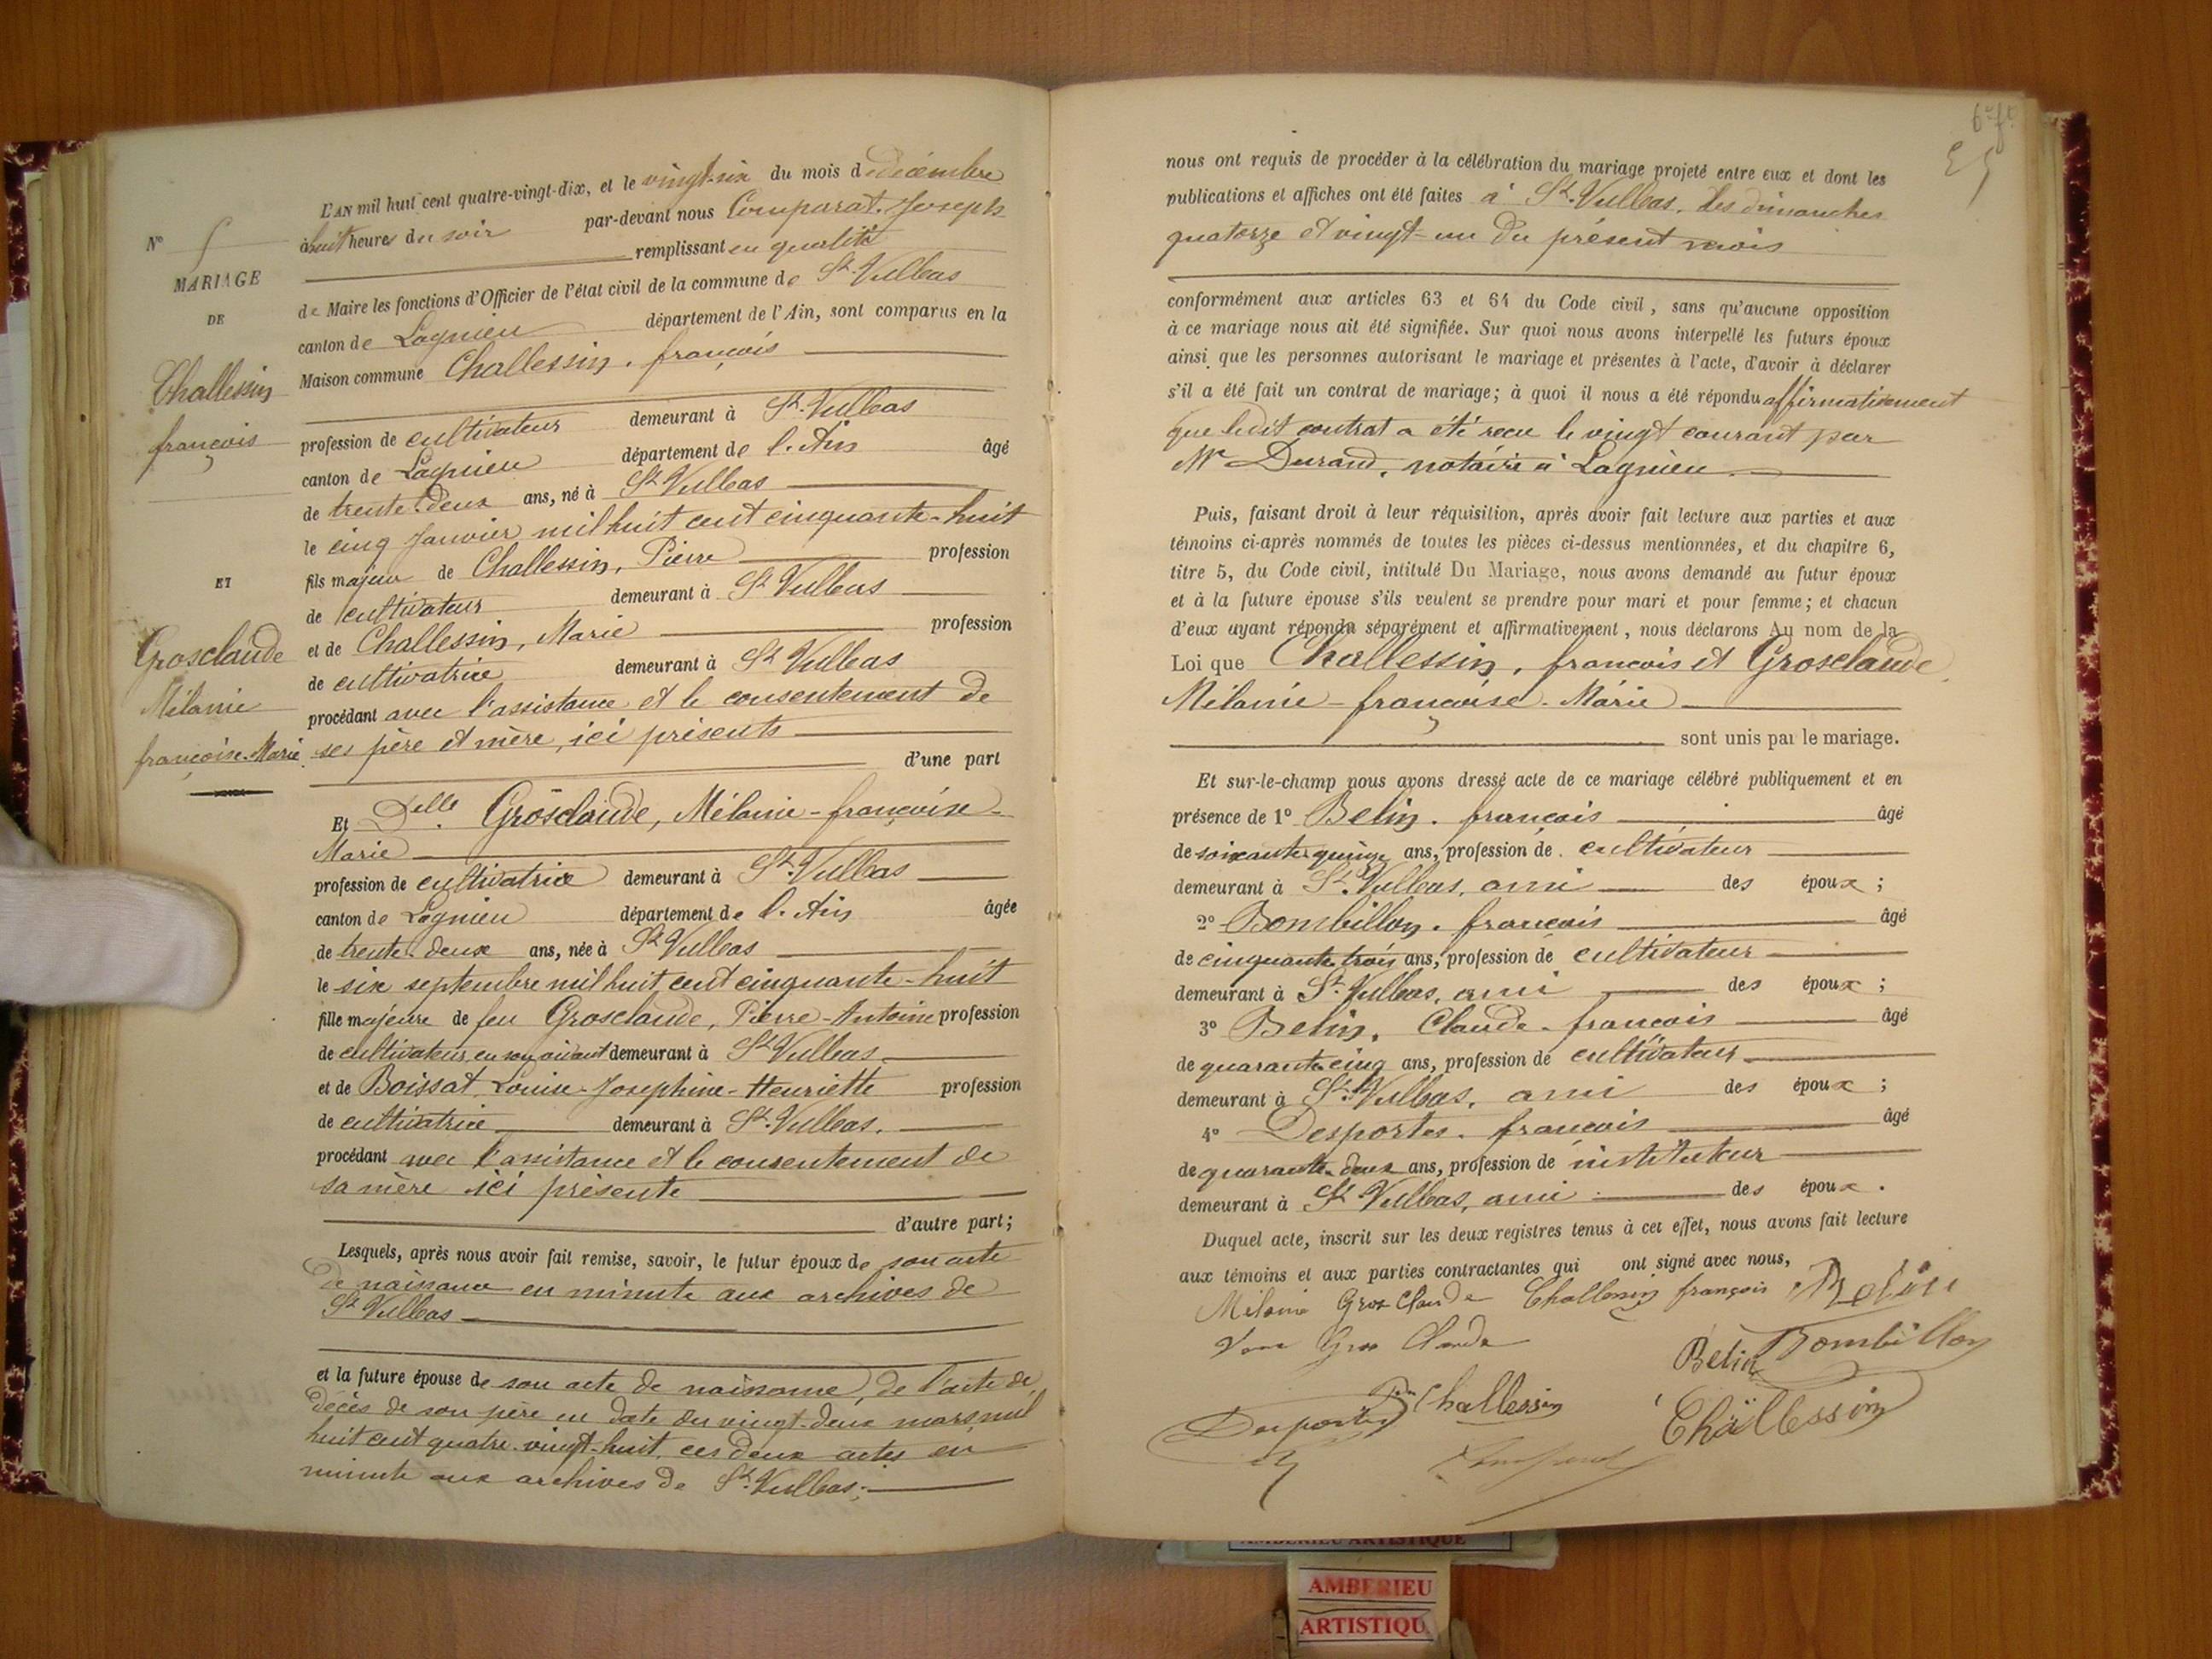 L'AN mil huit cent quatre-vingt-dix, et le vingt-six du mois de décembre
à huit heures du soir par-devant nous Comparat. Joseph
remplissant en qualité
de Maire les fonctions d'Officier de l'état civil de la commune de St. Vulbas
canton de Lagnieu département de l'Ain, sont comparus en la
Maison commune Challessin. françois
profession de cultivateur demeurant à St. Vulbas
canton de Lagnieu département de l'Ain âgé
de trente-deux ans, né à St. Vulbas
le cinq janvier mil huit cent cinquante-huit
fils majeur de Challessin, Pierre profession
de cultivateur demeurant à St. Vulbas
et de Challessin, Marie profession
de cultivatrice demeurant à St. Vulbas
procédant avec l'assistance et le consentement de
ses père et mère, ici présents
d'une part
N° 5
MARIAGE
DE
Challessin
françois
ET
Grosclaude
Mélanie
françoise-Marie
Et Delle. Grosclaude, Mélanie-françoise-
Marie
profession de cultivatrice demeurant à St. Vulbas
canton de Lagnieu département de l'Ain âgée
de trente-deux ans, née à St. Vulbas
le six septembre mil huit cent cinquante-huit
fille majeure de feu Grosclaude, Pierre-Antoine profession
de cultivateur en son vivant demeurant à St. Vulbas
et de Boissat, Louise-Josephine-Henriette profession
de cultivatrice demeurant à St. Vulbas.
procédant avec l'assistance et le consentement de
sa mère ici présente
d'autre part;
Lesquels, après nous avoir fait remise, savoir, le futur époux de son acte
de naissance en minute aux archives de
St. Vulbas
et la future épouse de son acte de naissance, de l'acte de
décès de son père en date du vingt-deux mars mil
huit cent quatre-vingt-huit, ces deux actes en
minute aux archives de St. Vulbas;
6e fo
nous ont requis de procéder à la célébration du mariage projeté entre eux et dont les
publications et affiches ont été faites à St. Vulbas, les dimanches
quatorze et vingt-un du présent mois
conformément aux articles 63 et 64 du Code civil, sans qu'aucune opposition
à ce mariage nous ait été signifiée. Sur quoi nous avons interpellé les futurs époux
ainsi que les personnes autorisant le mariage et présentes à l'acte, d'avoir à déclarer
s'il a été fait un contrat de mariage; à quoi il nous a été répondu affirmativement
que ledit contrat a été reçu le vingt courant par
Me Durand, notaire à Lagnieu.
Puis, faisant droit à leur réquisition, après avoir fait lecture aux parties et aux
témoins ci-après nommés de toutes les pièces ci-dessus mentionnées, et du chapitre 6,
titre 5, du Code civil, intitulé Du Mariage, nous avons demandé au futur époux
et à la future épouse s'ils veulent se prendre pour mari et pour femme; et chacun
d'eux ayant répondu séparément et affirmativement, nous déclarons Au nom de la
Loi que Challessin, françois et Grosclaude,
Mélanie-françoise-Marie
sont unis par le mariage.
Et sur-le-champ nous avons dressé acte de ce mariage célébré publiquement et en
présence de 1° Belin. françois âgé
de soixante-quinze ans, profession de cultivateur
demeurant à St. Vulbas, ami des époux;
2° Bombillon. françois âgé
de cinquante-trois ans, profession de cultivateur
demeurant à St. Vulbas, ami des époux;
3° Belin. Claude-françois âgé
de quarante-cinq ans, profession de cultivateur
demeurant à St. Vulbas, ami des époux;
4° Desportes. françois âgé
de quarante-deux ans, profession de instituteur
demeurant à St. Vulbas, ami des époux.
Duquel acte, inscrit sur les deux registres tenus à cet effet, nous avons fait lecture
aux témoins et aux parties contractantes qui ont signé avec nous,
Mélanie Gros Claude Challessin françois Belin
Gros Claude
Belin Bombillon
Challessin
Desportes Challessin
AMBERIEU ARTISTIQUE
AMBERIEU
ARTISTIQU